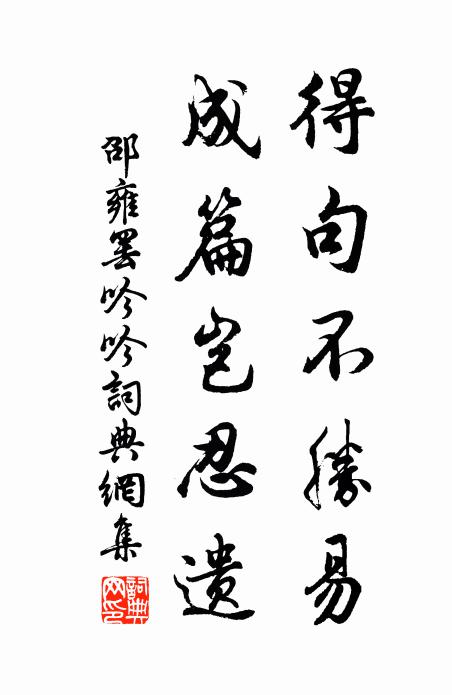 得句不勝易
成篇岂忍遺
邵雍罢吟吟詞典網集
詞典網印